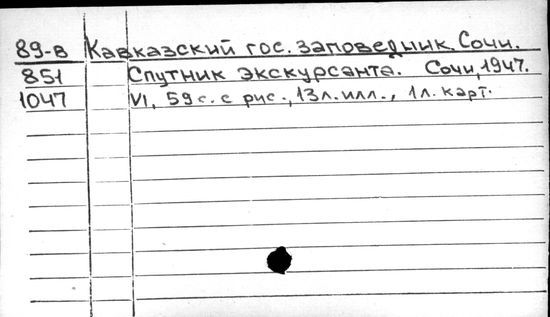 89-в Кавказский гос. заповедник. Сочи.
851 Спутник экскурсанта. Сочи, 1947.
1047 VI, 59 с. с рис., 13 л. илл., 1 л. карт.